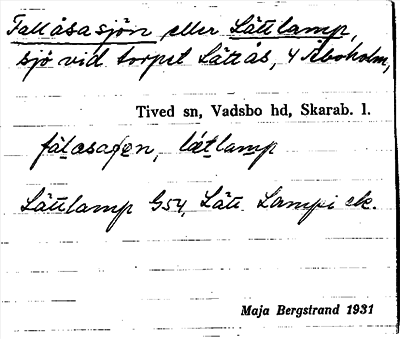 Fallåsasjön eller Lättlamp,
sjö vid torpet Lättås, 4 Åboholm,
Tived sn, Vadsbo hd, Skarab. l.
lætlamp
Lättlamp G54, Lätt Lampi ek.
Maja Bergstrand 1931